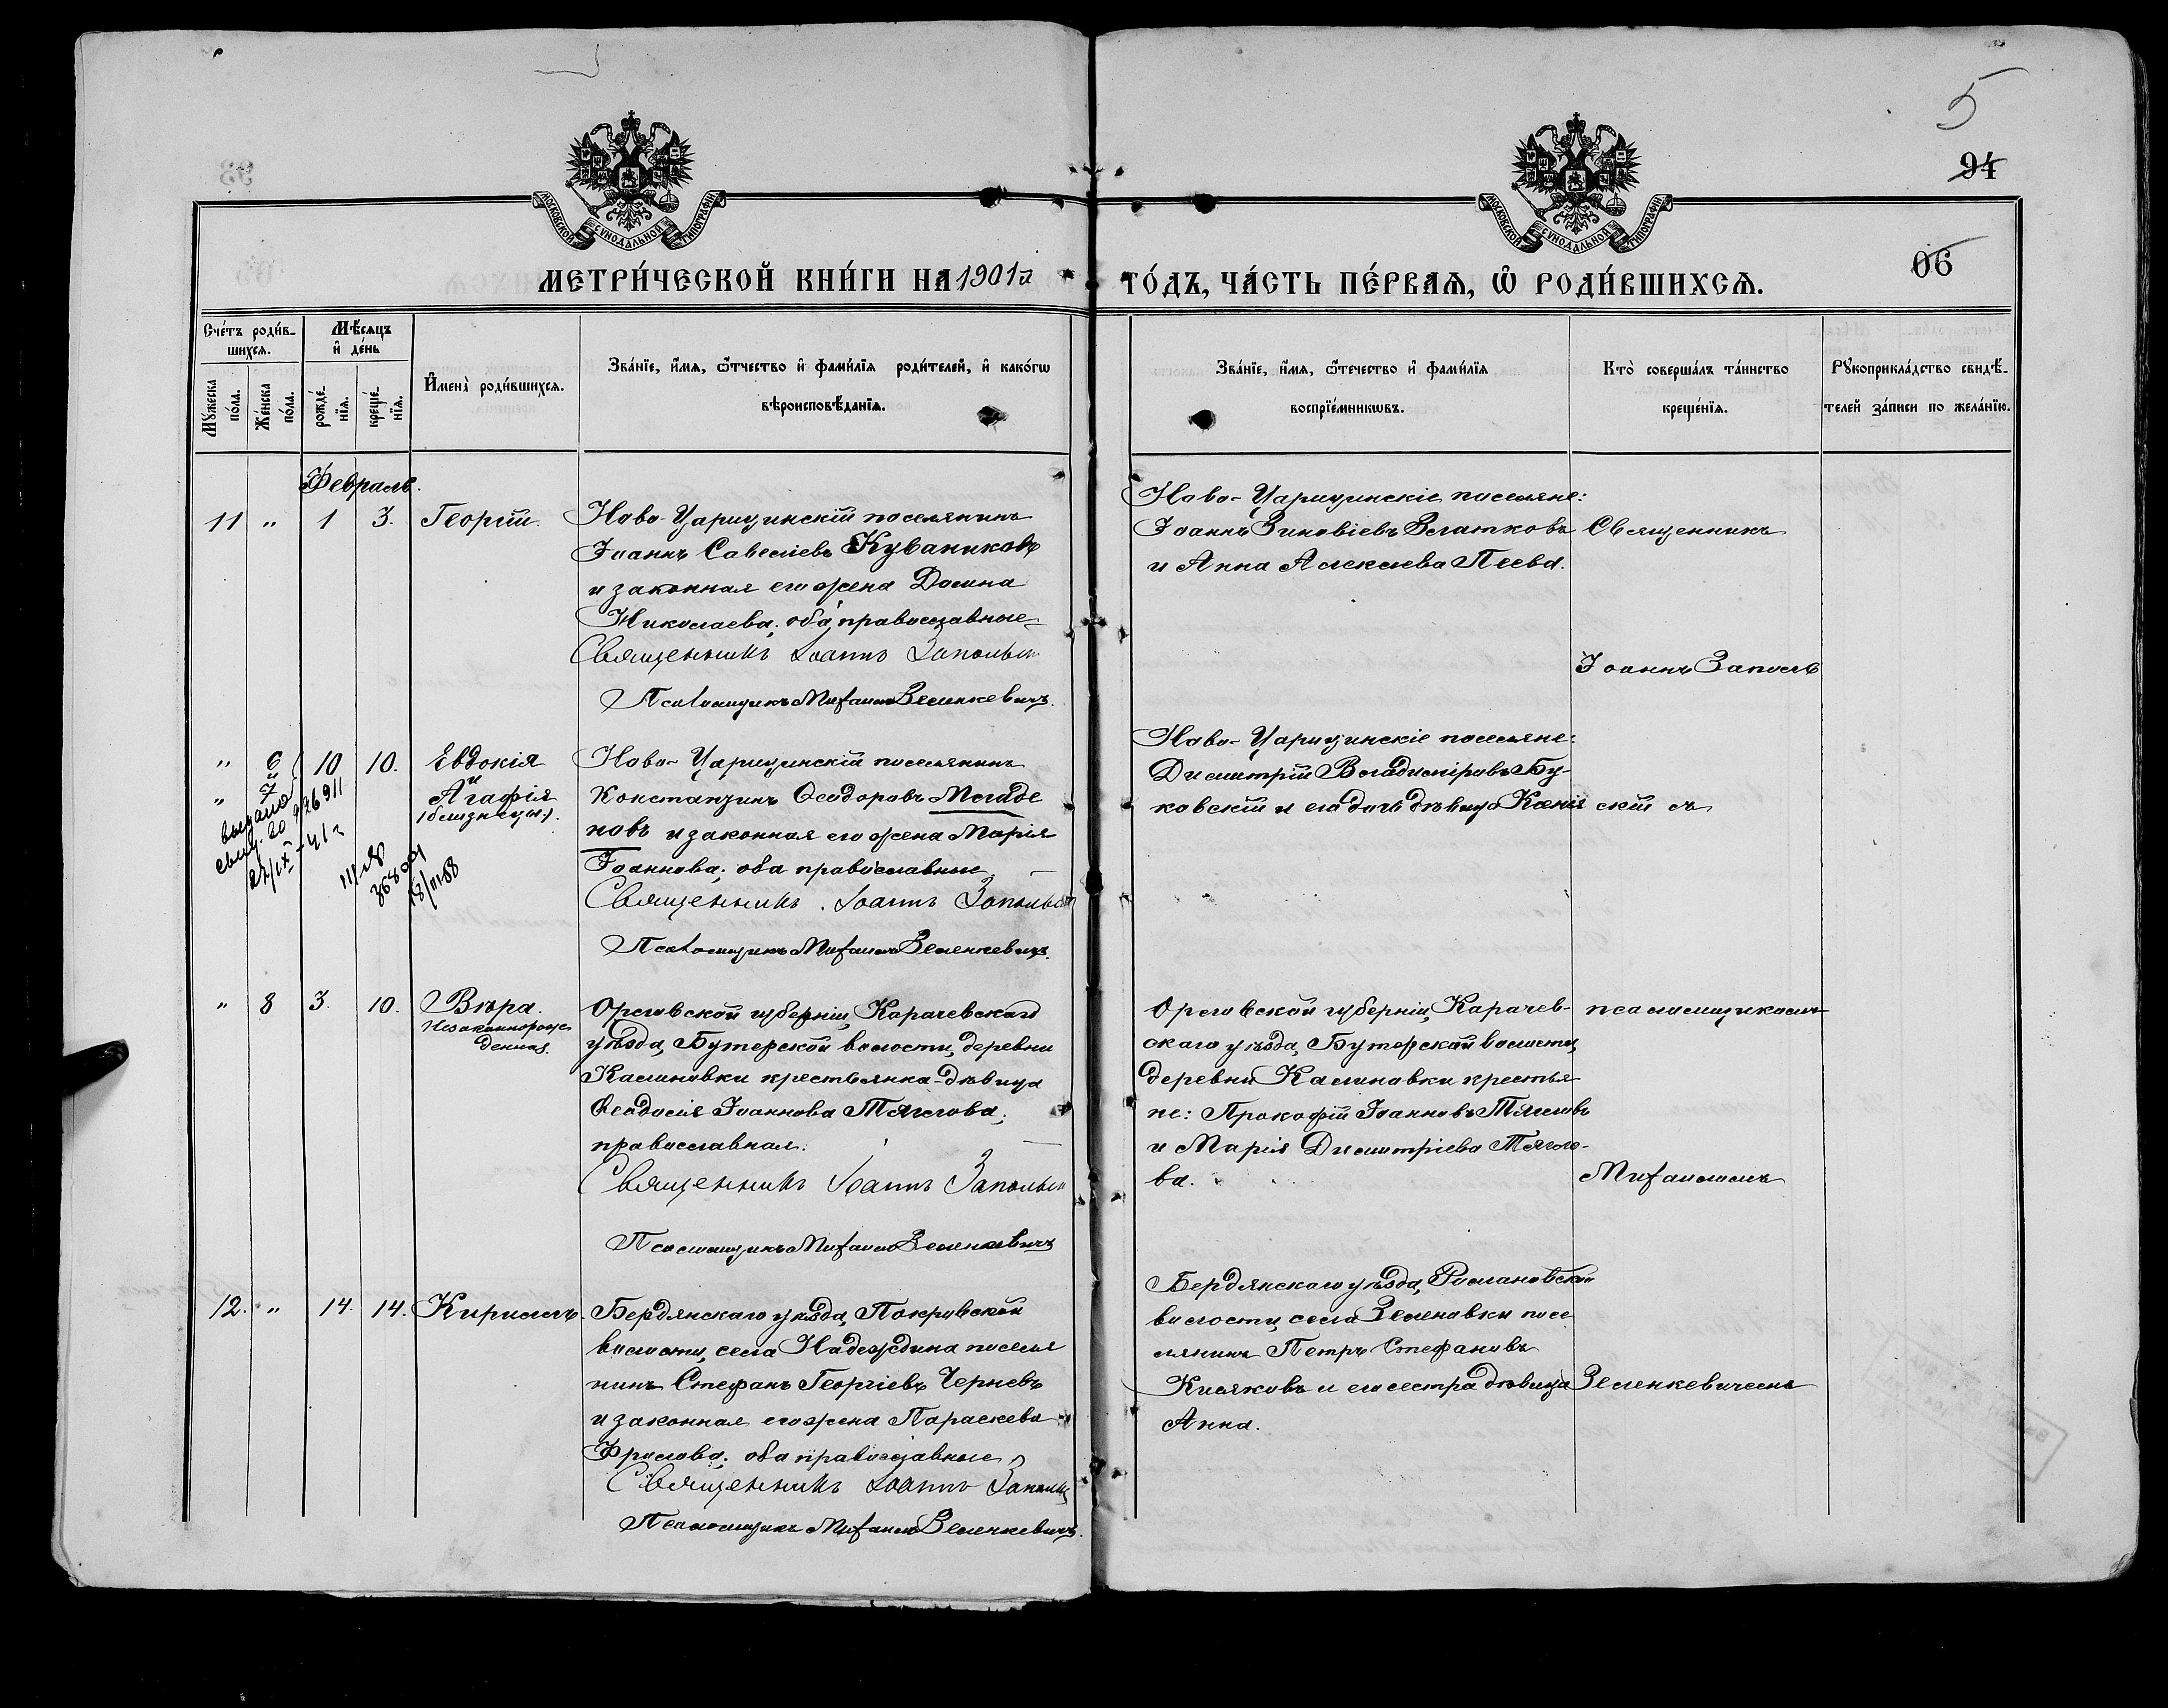 5
94
06
МОСКОВСКОЙ СѴНОДАЛЬНОЙ ТИПОГРАФІИ
МОСКОВСКОЙ СѴНОДАЛЬНОЙ ТИПОГРАФІИ
МЕТРИ́ЧЕСКОЙ КНИ́ГИ НА 1901й ГО́ДЪ, ЧА́СТЬ ПЕ́РВАѦ, Ѡ҆ РОДИ́ВШИХСѦ.
Сче́тъ роди́в-
шихсѧ.
Мꙋ́жеска по́ла.
Же́нска по́ла.
Мѣ́сѧцъ
и҆ де́нь
рожде́-
нїѧ.
креще́-
нїѧ.
И҆мена̀ роди́вшихсѧ.
Зва́нїе, и҆́мѧ, ѻ҆́тчество и҆ фами́лїѧ роди́телей, и҆ како́гѡ
вѣроисповѣ́данїѧ.
Зва́нїе, и҆́мѧ, ѻ҆́течество и҆ фами́лїѧ
воспрїе́мникѡвъ.
Кто̀ соверша́лъ та́инство
креще́нїѧ.
Рꙋкоприкла́дство свидѣ́-
телей за́писи по жела́нїю.
Февраль.
11 " 1 3. Георгій.
Ново-Царицинскій поселянинъ
Іоаннъ Савеліевъ Куваниковъ
и законная его жена Домна
Николаева; оба православные
Священникъ Іоаннъ Запольск
Псаломщикъ Михаилъ Зеленкевичъ.
Ново-Царицинскіе поселяне:
Іоаннъ Зиновіевъ Златковъ
и Анна Алексѣева Пеева.
Священникъ
Іоаннъ Заполь
" 6 10 10. Евдокія
и
" 7 Агафія
(близнецы).
выдано
27/IX-41 г
13/III-58
Ново-Царицинскій поселянинъ
Константинъ Ѳеодоровъ Младе
новъ и законная его жена Марія
Іоаннова; оба православные
Священникъ Іоаннъ Запольск
Псаломщикъ Михаилъ Зеленкевичъ.
Ново-Царицинскіе поселяне:
Димитрій Владиміровъ Бу-
ковскій и его дочь дѣвица Ксенія
скій съ
" 8 3. 10. Вѣра.
Незаконнорож
денная.
Орловской губерніи, Карачевскаго
уѣзда, Бутерской волости, деревни
Калиновки крестьянка-дѣвица
Ѳеодосія Іоаннова Тяглова;
православная.
Священникъ Іоаннъ Запольск
Псаломщикъ Михаилъ Зеленкевичъ
Орловской губерніи, Карачев-
скаго уѣзда, Бутерской волости,
деревни Калиновки крестья
не: Прокофій Іоанновъ Тягловъ
и Марія Димитріева Тягло-
ва.
псаломщикомъ
Михаиломъ
12. " 14. 14. Кириллъ.
Бердянскаго уѣзда, Покровской
волости, села Надеждина поселя
нинъ Стефанъ Георгіевъ Черневъ
и законная его жена Параскева
Фролова; оба православные
Священникъ Іоаннъ Заполь
Псаломщикъ Михаилъ Зеленкевичъ.
Бердянскаго уѣзда, Романовской
волости, села Зеленовки посе
лянинъ Петръ Стефановъ
Кисяковъ и его сестра дѣвица
Анна.
Зеленкевичемъ